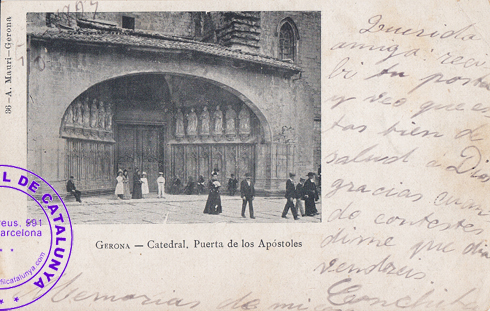 36 - A. Mauri - Gerona
GERONA — Catedral, Puerta de los Apóstoles
Querida
amiga reci
bi tu posta
y veo que es
tas bien de
salud a Dios
gracias cuan
do contestes
dime que dia
vendreis
Memorias de mi
L DE CATALUNYA
eus, 991
arcelona
catalunya.com